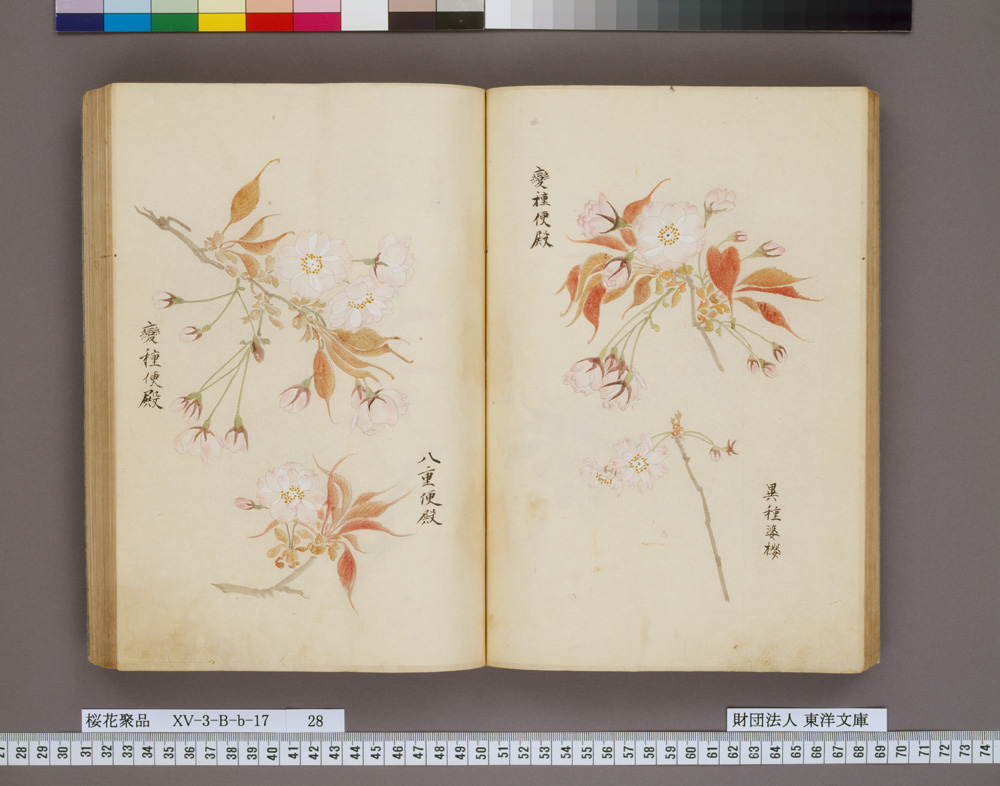 變種便殿
異種婆櫻
變種便殿
八重便殿
桜花聚品 XV-3-B-b-17 28
財団法人 東洋文庫
27 28 29 30 31 32 33 34 35 36 37 38 39 40 41 42 43 44 45 46 47 48 49 50 51 52 53 54 55 56 57 58 59 60 61 62 63 64 65 66 67 68 69 70 71 72 73 74